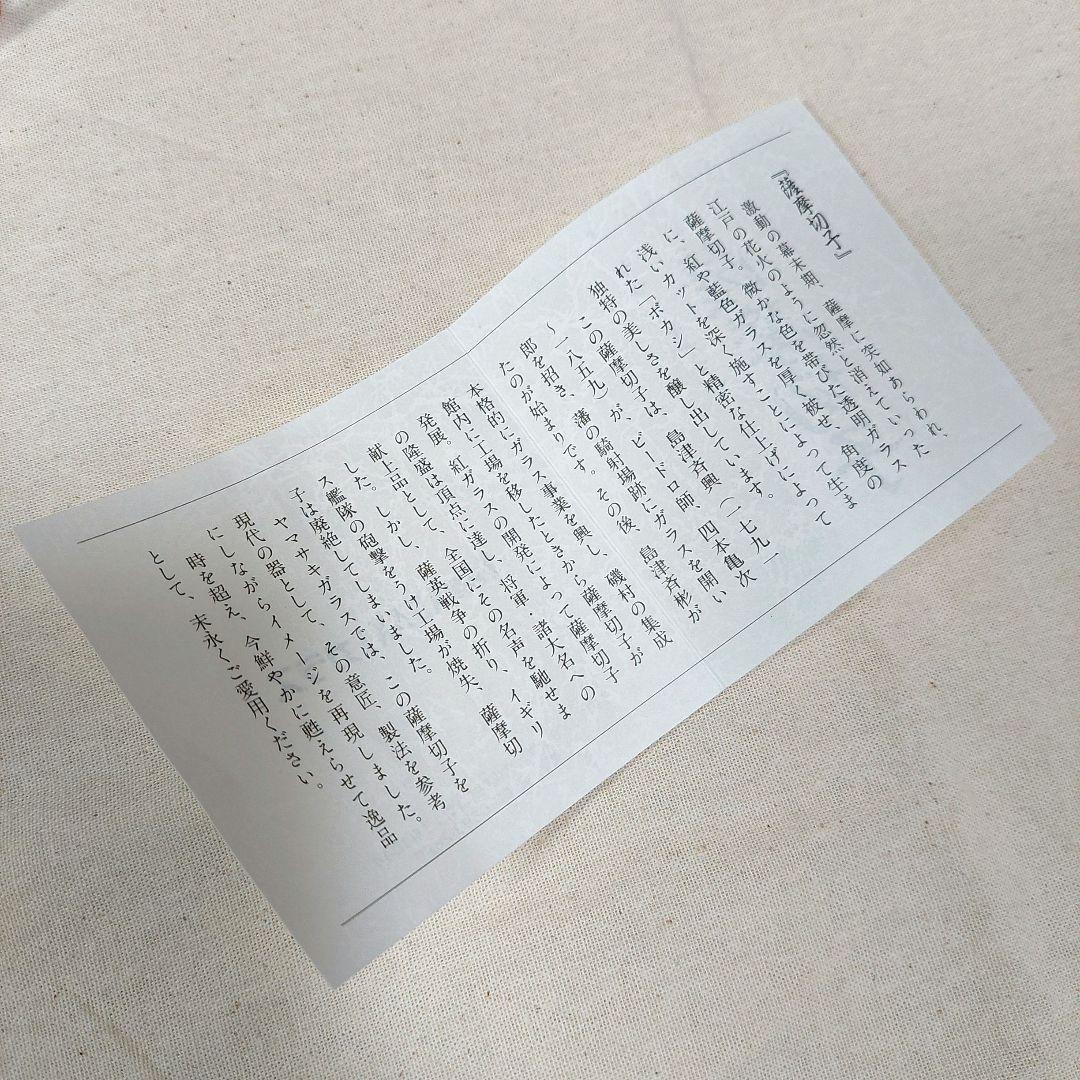 『薩摩切子』
激動の幕末期、薩摩に突如あらわれ、
江戸の花火のように忽然と消えていった
薩摩切子。微かな色を帯びた透明ガラス
に、紅や藍色ガラスを厚く被せ、角度の
浅いカットを深く施すことによって生ま
れた「ボカシ」と精密な仕上げによって
独特の美しさを醸し出しています。
この薩摩切子は、島津斉興（一七九一
～一八五九）が、ビードロ師、四本亀次
郎を招き、藩の騎射場跡にガラスを開い
たのが始まりです。その後、島津斉彬が
本格的にガラス事業を興し、磯村の集成
館内に工場を移したときから薩摩切子が
発展。紅ガラスの開発によって薩摩切子
の隆盛は頂点に達し、将軍・諸大名への
献上品として、全国にその名声を馳せま
した。しかし、薩英戦争の折り、イギリ
ス艦隊の砲撃をうけ工場が焼失、薩摩切
子は廃絶してしまいました。
ヤマサキガラスでは、この薩摩切子を
現代の器として、その意匠、製法を参考
にしながらイメージを再現しました。
時を超え、今鮮やかに甦えらせて逸品
として、末永くご愛用ください。